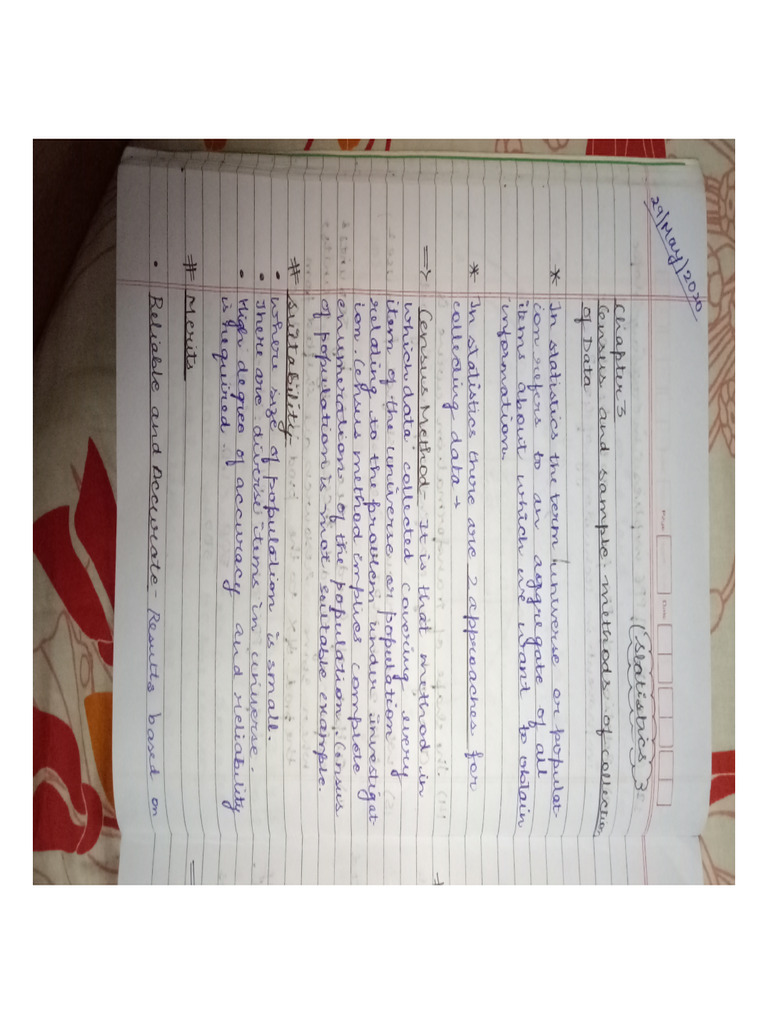 29/May/2020
(Statistics)
Chapter 3
Census and sample methods of collection
of Data
* In statistics the term universe or populat-
ion refers to an aggregate of all
items about which we want to obtain
information.
* In statistics there are 2 approaches for
collecting data →
=> Census Method - It is that method in
which data collected covering every
item of the universe or population
relating to the problem under investigat
ion. Census method implies complete
enumeration of the population. Census
of population is most suitable example.
# Suitability
• Where size of population is small.
• There are diverse items in universe.
• High degree of accuracy and reliability
is required.
# Merits
• Reliable and Accurate - Results based on